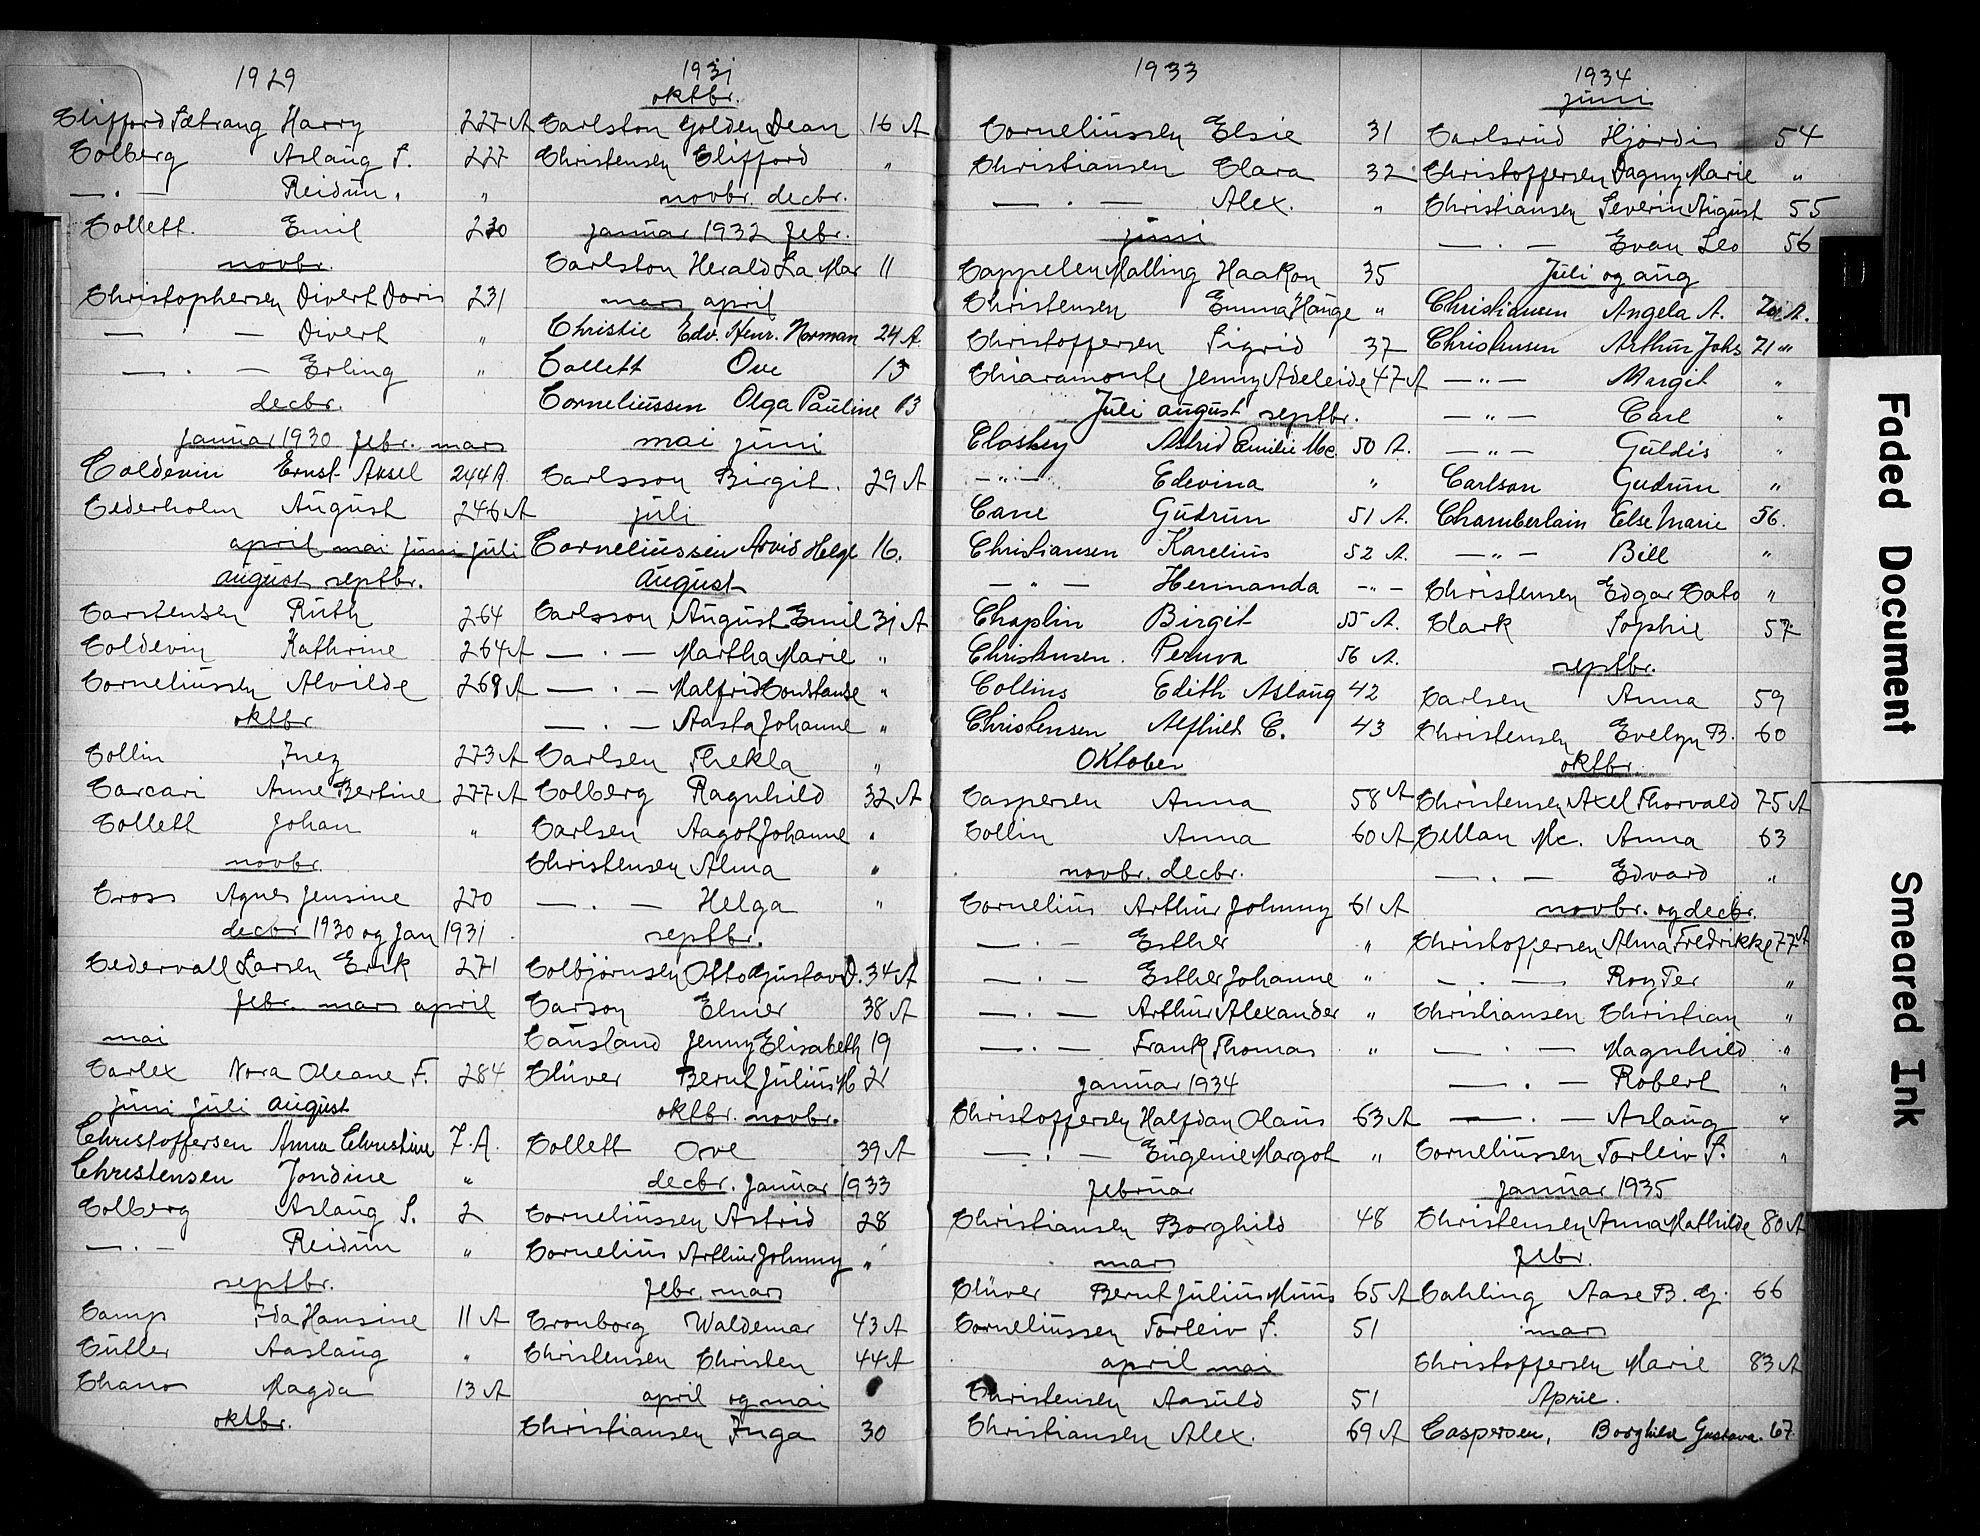 1929
Clifford Sætrang Harry 227 A
Colberg Aslaug S. 227
— . — Reidun. "
Collett. Emil 230
novbr.
Christophersen Divert Doris 231
— . — Divert "
— . — Erling "
decbr.
januar 1930 febr. mars
Coldevin Ernst Aksel 244 A.
Cederholm August 246 A
april mai juni juli
august septbr.
Carstensen Ruth 264
Coldevin Kathrine 264 A
Corneliussen Alvilde 269 A
oktbr.
Collin Inez 273 A
Carcari Anne Bertine 277 A
Collett Johan "
novbr.
Cross Agnes Jensine 270
decbr 1930 og Jan 1931
Cedervall Larsen Erik 271
febr. mars april
mai
Carlex Nora Oleane F. 284
juni juli august
Christoffersen Anna Christine 7. A.
Christensen Jondine "
Colberg Aslaug S. 2
— . — Reidun "
septbr.
Camp Ida Hansine 11 A
Cutler Aaslaug "
Chano Magda 13 A
oktbr.
1931
oktbr.
Carlston Golden Dean 16 A
Christensen Clifford "
novbr. decbr.
januar 1932 febr.
Carlston Herald La Mar 11
mars april
Christie Edv. Henr. Norman 24 A.
Collett Ove 13
Corneliussen Olga Pauline 13
mai juni
Carlsson Birgit. 29 A
juli
Corneliussen Arvid Helge 16.
August
Carlsson August Emil 31 A
— . — Martha Marie "
— . — Malfrid Constanse "
— . — Aasta Johanne "
Carlsen Thekla "
Colberg Ragnhild 32 A
Carlsen Aagot Johanne "
Christensen Alma "
— . — Helga "
septbr.
Colbjørnsen Otto Gustav D. 34 A
Carson Elmer 38 A
Causland Jenny Elisabeth 19
Clüver Bernt Julius M 21
oktbr. novbr.
Collett Ove 39 A
decbr. januar 1933
Corneliussen Astrid 28
Cornelius Arthur Johnny "
febr. mars
Cronborg Waldemar 43 A
Christensen Christen 44 A
april og mai
Christiansen Inga 30
1933
Corneliussen Elsie 31
Christiansen Clara 32
— . — Alex. "
juni
Cappelen Malling Haakon 35
Christensen Emma Hauge "
Christoffersen Sigrid 37
Chiaramonte Jenny Adeleide 47 A
Juli august septbr.
Closkey Astrid Emilie Mc 50 A.
— " — Edevina "
Cane Gudrun 51 A.
Christiansen Karelius 52 A.
— " — Hermanda — " —
Chaplin Birgit 55 A.
Christensen. Peruva 56 A.
Collins Edith Aslaug 42
Christensen Alfhild C. 43
Oktober
Caspersen Anna 58 A
Collin Anna 60 A
novbr. decbr.
Cornelius Arthur Johnny 61 A
— . — Esther "
— . — Esther Johanne "
— . — Arthur Alexander "
— . — Frank Thomas "
januar 1934
Christoffersen Halfdan Olaus 63 A
— . — Eugenie Margot "
februar
Christiansen Borghild 48
mars
Clüver Bernt Julius Muus 65 A
Corneliussen Torleiv S. 51
april mai
Christensen Aasuld 51
Christiansen Alex. 69 A
1934
juni
Carlsrud Hjørdis 54
Christoffersen Dagny Marie "
Christiansen Severin August 55
— . — Evan Leo 56
Juli og aug
Christiansen Angela A. 70 A.
Christensen Arthur Johs 71 "
— " — Margit "
— " — Carl "
— " — Guldis "
Carlson Gudrun "
Chamberlain Else Marie 56.
— " — Bill "
Christensen Edgar Cato "
Clark Sophie 57
septbr.
Carlsen Anna 59
Christensen Evelyn B. 60
oktbr.
Christensen Axel Thorvald 75 A
Cellan Mc. Anna 63
— . — Edvard "
novbr. og decbr.
Christoffersen Alma Fredrikke 77 A
— . — Roy Ter "
Christiansen Christian "
— . — Magnhild "
— . — Robert "
— . — Aslaug "
Corneliussen Torleiv S. "
januar 1935
Christensen Anna Mathilde 80 A
febr.
Cahling Aase B. G. 66
mars
Christoffersen Marie 83 A
April.
Caspersen, Borghild Gustava. 67
Faded Document
Smeared Ink